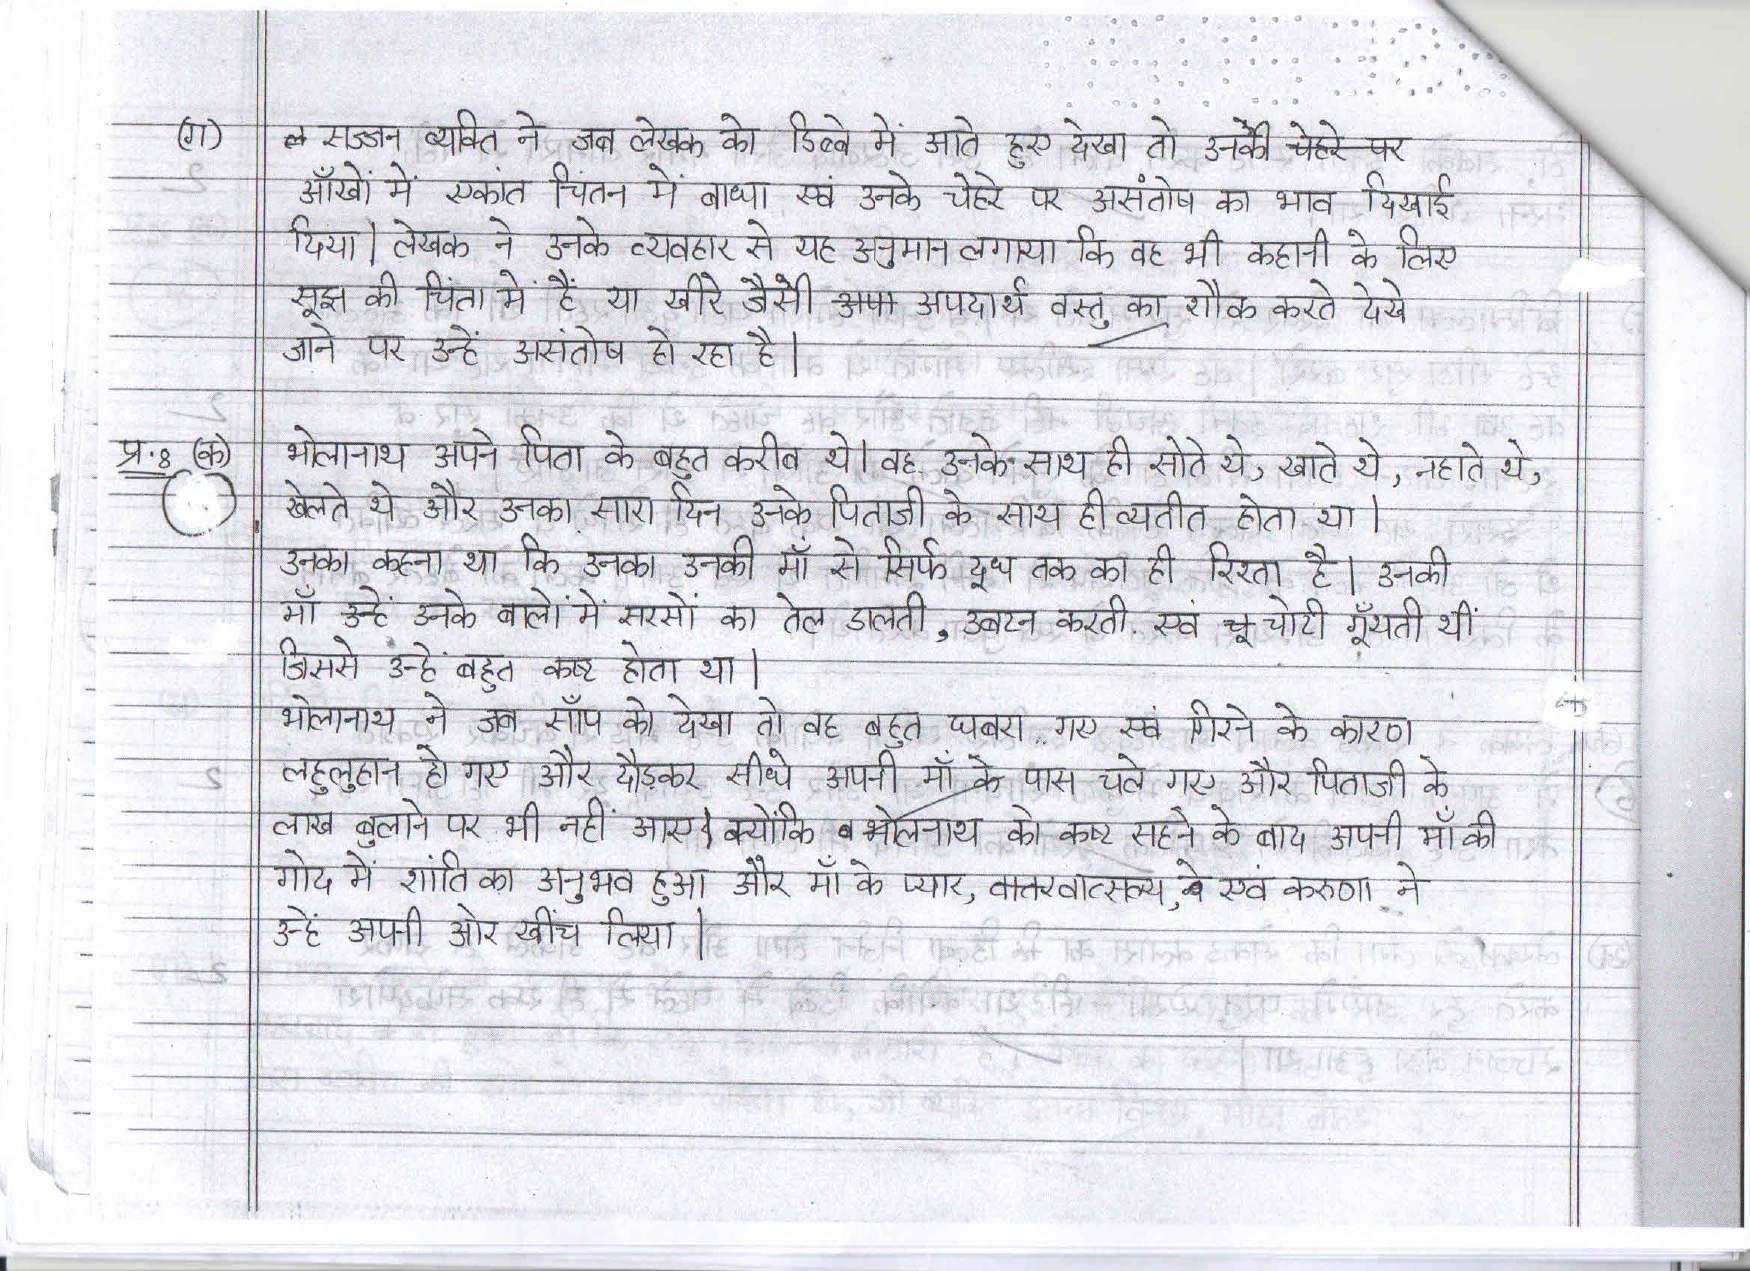 (ग) सज्जन व्यक्ति ने जब लेखक को डिब्बे में आते हुए देखा तो उनकी चेहरे पर
आँखों में एकांत चिंतन में बाधा एवं उनके चेहरे पर असंतोष का भाव दिखाई
दिया। लेखक ने उनके व्यवहार से यह अनुमान लगाया कि वह भी कहानी के लिए
सूझ की चिंता में हैं या खीरे जैसी अपदार्थ वस्तु का शौक करते देखे
जाने पर उन्हें असंतोष हो रहा है।
प्र.8 (क) भोलानाथ अपने पिता के बहुत करीब थे। वह उनके साथ ही सोते थे, खाते थे, नहाते थे,
खेलते थे और उनका सारा दिन उनके पिताजी के साथ ही व्यतीत होता था।
उनका कहना था कि उनका उनकी माँ से सिर्फ दूध तक का ही रिश्ता है। उनकी
माँ उन्हें उनके बालों में सरसों का तेल डालती, उबटन करती एवं चोटी गूँथती थीं
जिससे उन्हें बहुत कष्ट होता था।
भोलानाथ ने जब साँप को देखा तो वह बहुत घबरा गए एवं गिरने के कारण
लहुलुहान हो गए और दौड़कर सीधे अपनी माँ के पास चले गए और पिताजी के
लाख बुलाने पर भी नहीं आए। क्योंकि भोलनाथ को कष्ट सहने के बाद अपनी माँ की
गोद में शांति का अनुभव हुआ और माँ के प्यार, वात्सल्य, एवं करुणा ने
उन्हें अपनी ओर खींच लिया।